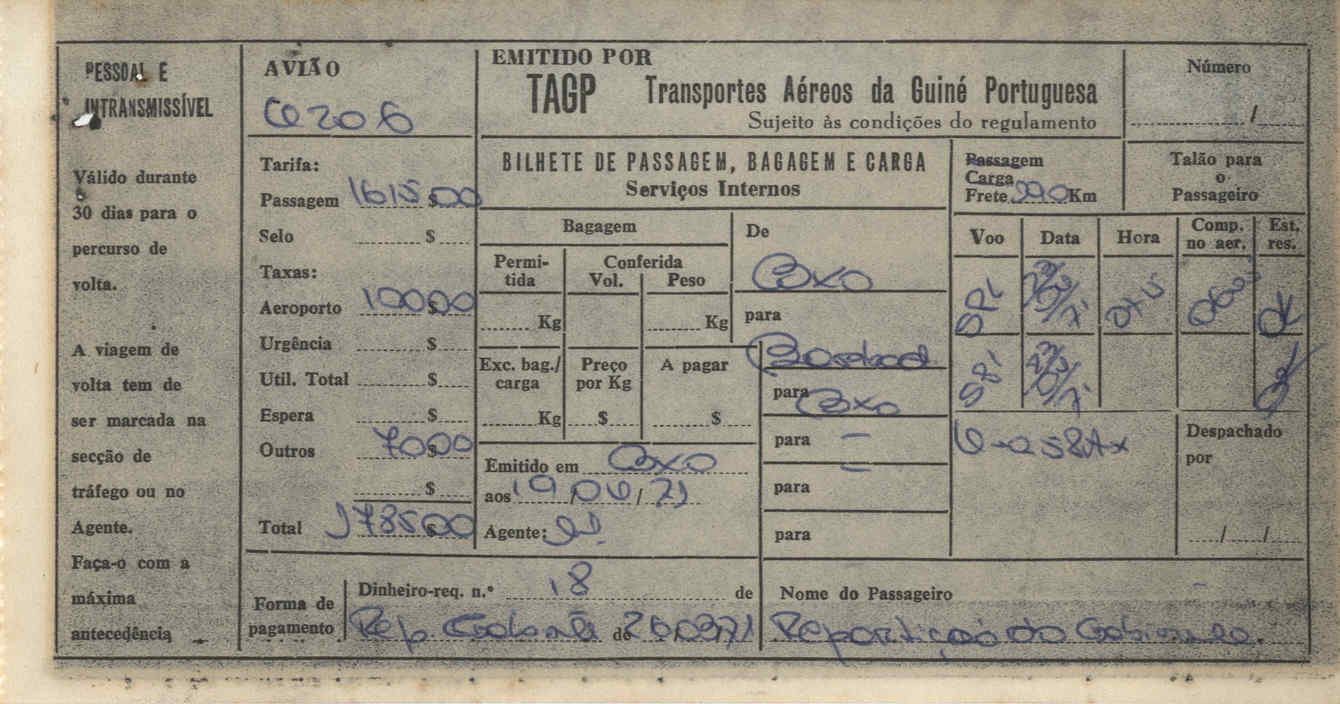 PESSOAL E
INTRANSMISSÍVEL
Válido durante
30 dias para o
percurso de
volta.
A viagem de
volta tem de
ser marcada na
secção de
tráfego ou no
Agente.
Faça-o com a
máxima
antecedência
AVIÃO
Tarifa:
Passagem 1615$00
Selo $
Taxas:
Aeroporto 100$00
Urgência $
Util. Total $
Espera $
Outros 70$00
$
Total 1785$00
EMITIDO POR
TAGP Transportes Aéreos da Guiné Portuguesa
Sujeito às condições do regulamento
Número
/
BILHETE DE PASSAGEM, BAGAGEM E CARGA
Serviços Internos
Passagem
Carga
Frete Km
Talão para
o
Passageiro
Bagagem
Permi-
tida
Conferida
Vol. Peso
Kg Kg
Exc. bag./
carga
Preço
por Kg
A pagar
Kg $ $
Emitido em Bxo
aos / /
Agente:
De
Bxo
para
para
Bxo
para —
para
para
Voo Data Hora Comp.
no aer. Est.
res.
OK
Despachado
por
/ /
Forma de
pagamento
Dinheiro-req. n.º 18 de
Rep. de
Nome do Passageiro
Repartição do Gabinete.